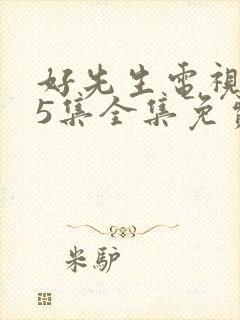 好先生電視
5集全集免費
米驴